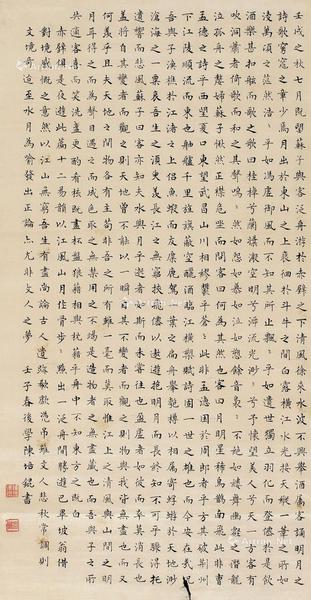 壬戌之秋七月既望蘇子與客泛舟游於赤壁之下清風徐來水波不興舉酒屬客誦明月之
詩歌窈窕之章少焉月出於東山之上徘徊於斗牛之間白露橫江水光接天縱一葦之所如
凌萬頃之茫然浩浩乎如馮虛御風而不知其所止飄飄乎如遺世獨立羽化而登僊於是飲
酒樂甚扣舷而歌之歌曰桂棹兮蘭槳擊空明兮溯流光渺渺兮予懷望美人兮天一方客有
吹洞簫者倚歌而和之其聲嗚嗚然如怨如慕如泣如愬餘音嫋嫋不絕如縷舞幽壑之潛蛟
泣孤舟之嫠婦蘇子愀然正襟危坐而問客曰何為其然也客曰月明星稀烏鵲南飛此非曹
孟德之詩乎西望夏口東望武昌山川相繆鬱乎蒼蒼此非孟德之困於周郎者乎方其破荊州
下江陵順流而東也舳艫千里旌旗蔽空釃酒臨江橫槊賦詩固一世之雄也而今安在哉況
吾與子漁樵於江渚之上侶魚蝦而友麋鹿駕一葉之扁舟舉匏樽以相屬寄蜉蝣於天地渺
滄海之一粟哀吾生之須臾羨長江之無窮挾飛僊以遨遊抱明月而長終知不可乎驟得托
遺響於悲風蘇子曰客亦知夫水與月乎逝者如斯而未嘗往也盈虛者如彼而卒莫消長也
蓋將自其變者而觀之則天地曾不能以一瞬自其不變者而觀之則物與我皆無盡也而又
何羨乎且夫天地之間物各有主苟非吾之所有雖一毫而莫取惟江上之清風與山間之明
月耳得之而為聲目遇之而成色取之無禁用之不竭是造物者之無盡藏也而吾與子之所
共適客喜而笑洗盞更酌肴核既盡杯盤狼藉相與枕藉乎舟中不知東方之既白
赤俱是夜遊此篇十二易韻以江風山月作骨步步點出一泛舟間勝遊已畢坡翁借
對境感慨之意然以江山無窮吾生有盡尚論古人遺歔欷憑吊雖文人悲秋常調則
文境奇造至水月為喻發出正論亦尤非文人之夢 壬子春後學陳培錕書